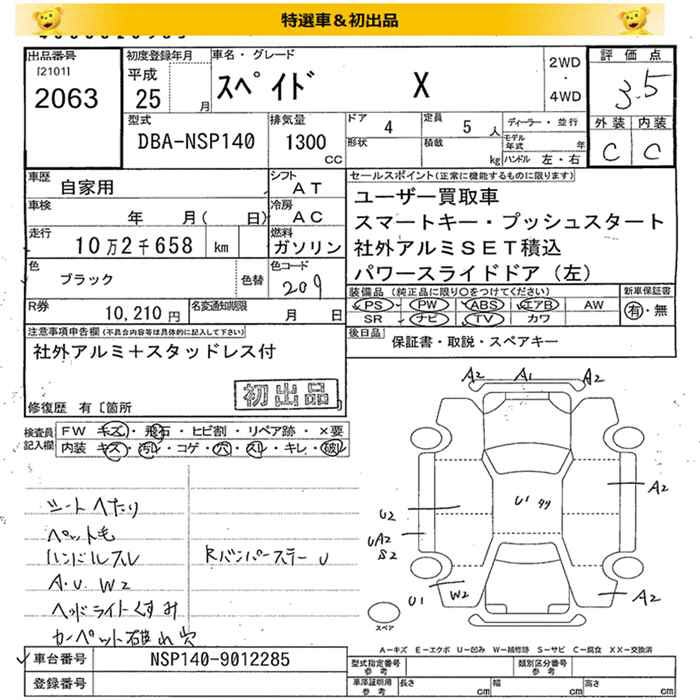 特選車＆初出品
出品番号
[2101]
2063
初度登録年月
平成
25 月
車名・グレード
スペイド X
2WD
・
4WD
評価点
3.5
外装 内装
C C
型式
DBA-NSP140
排気量
1300
CC
ドア 4
形状
定員 5 人
積載 kg
ディーラー・並行
モデル年式 年
ハンドル 左・右
車歴 自家用
シフト AT
車検 年 月( 日)
冷房 AC
走行 10万2千658 km
燃料 ガソリン
色 ブラック 色替
色コード 209
R券 10,210円
名変通知期限 月 日
セールスポイント(正常に機能するものに限ります)
ユーザー買取車
スマートキー・プッシュスタート
社外アルミSET積込
パワースライドドア（左）
装備品（純正品に限り○をつけてください）
PS PW ABS エアB AW
SR ナビ TV カワ
新車保証書
有・無
後日品 保証書・取説・スペアキー
注意事項申告欄(不具合内容等は具体的に記入して下さい)
社外アルミ＋スタッドレス付
初出品
修復歴 有〔箇所
検査員記入欄
FW キズ・飛石・ヒビ割・リペア跡・×要
内装 キズ・汚レ・コゲ・穴・スレ・キレ・破レ
シートヘたり
ペット毛
ハンドルスレ
Rバンパーステー U
A・U W2
ヘッドライトくすみ
カーペット破れ穴
A2 A1 A2
A2
U1
U2
UA2
S2
U1 W2
A2
スペア
A－キズ E－エクボ U－凹み W－補修跡 S－サビ C－腐食 XX－交換済
車台番号 NSP140-9012285
登録番号
型式指定番号 参考
類別区分番号 参考
車庫証明用 参考
長さ cm
幅 cm
高さ cm